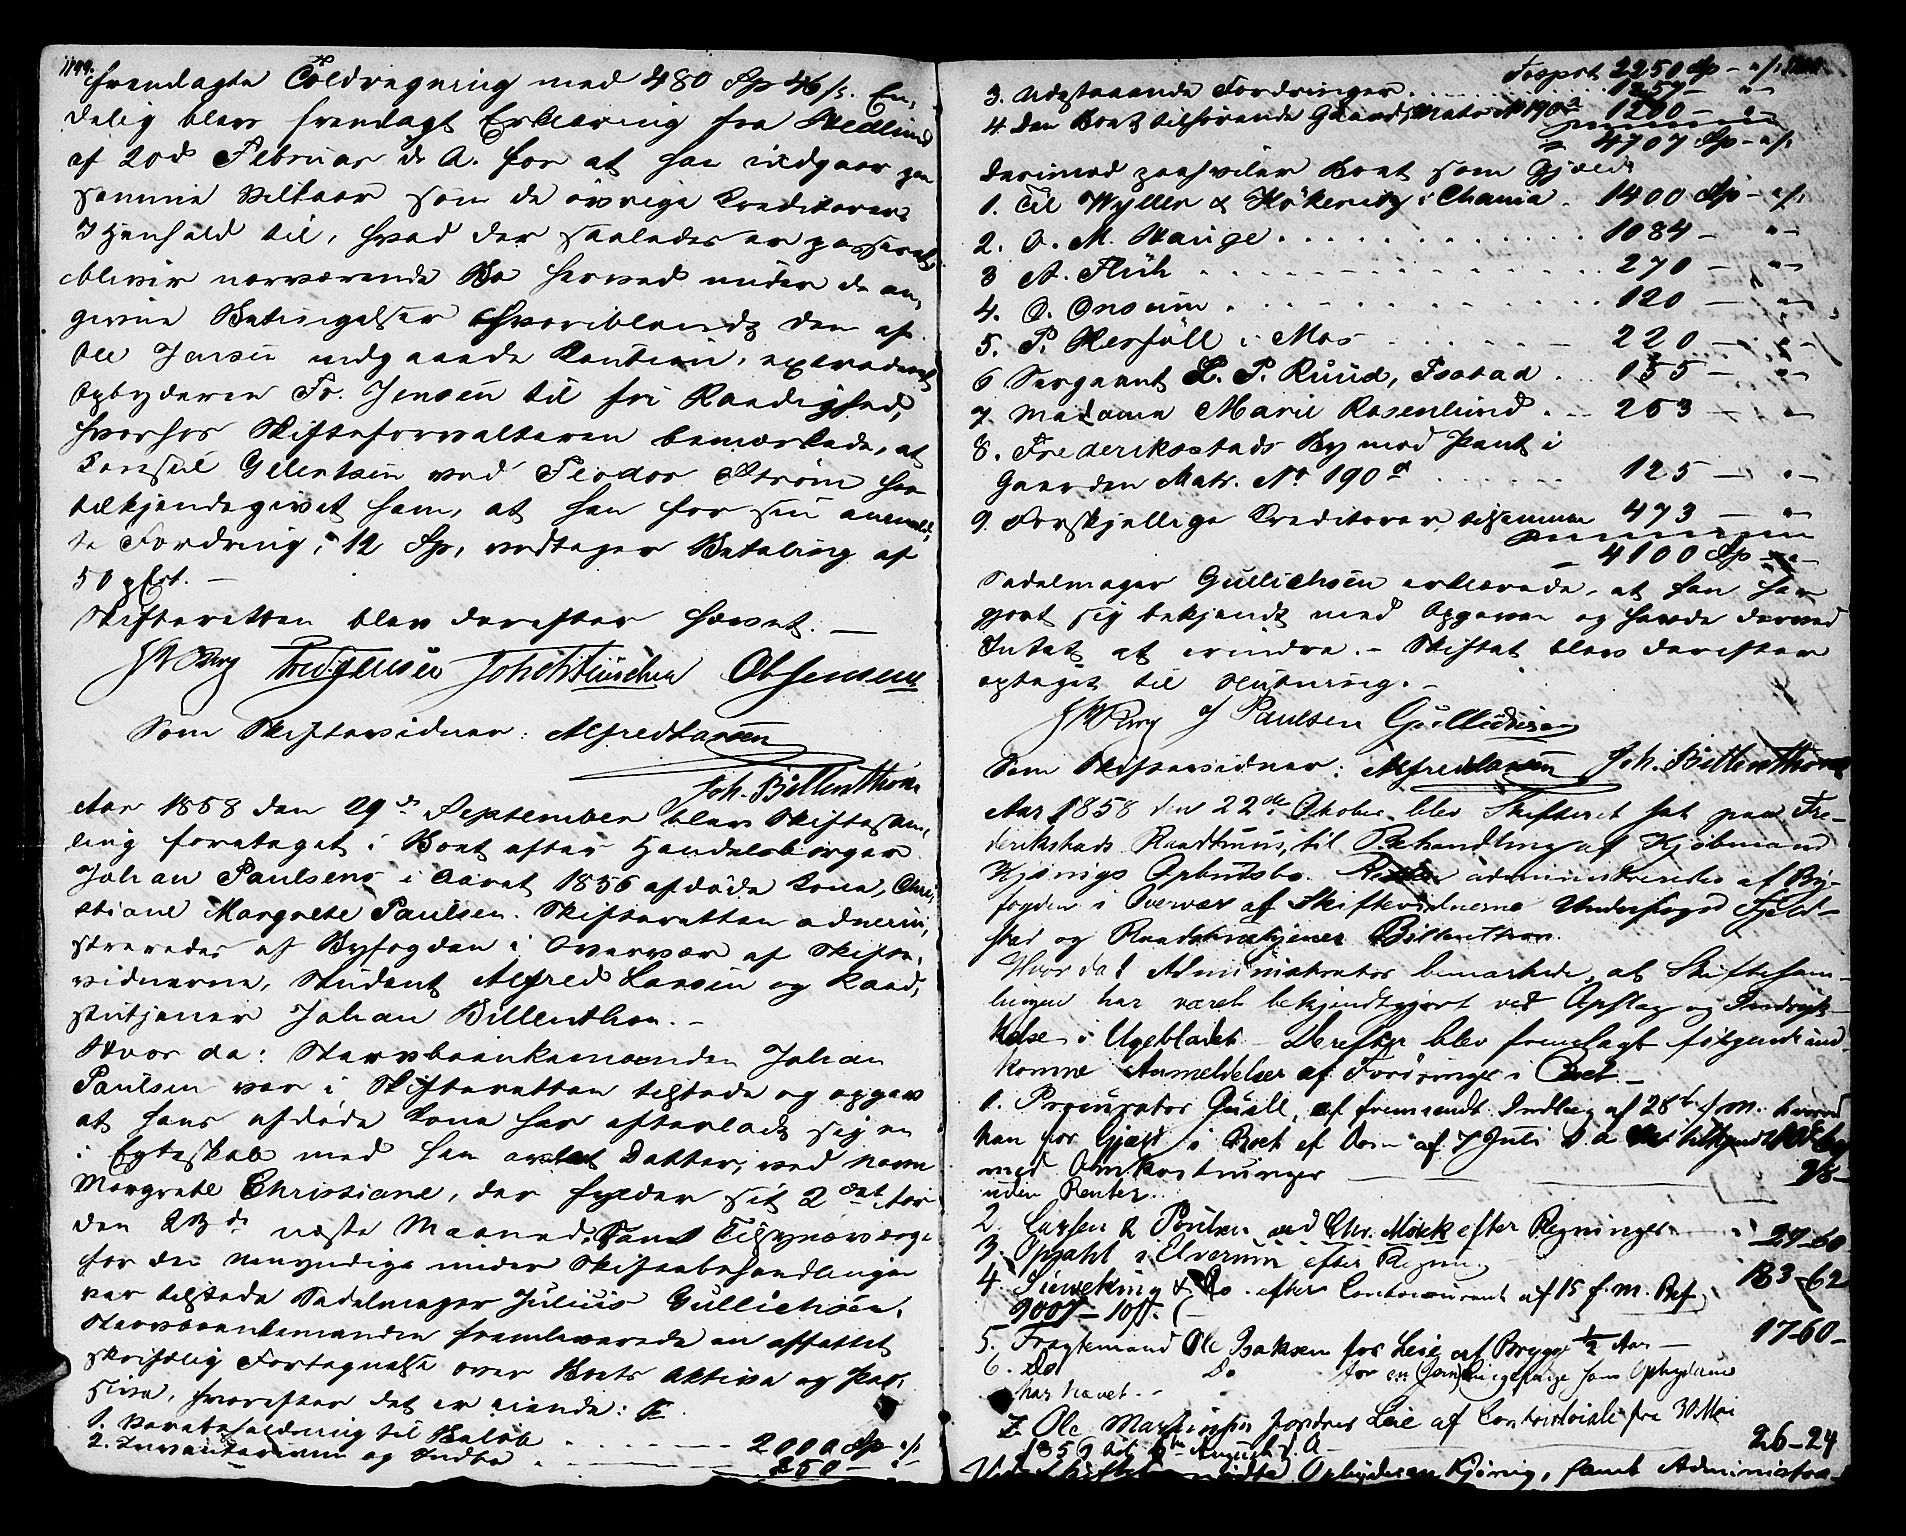 1199.
fremlagte Töldregning med 480 Sp 46 /s. En-
delig blev fremlagt Erklæring fra Wedlund
af 20de Februar d. A. for at han indgaar paa
samme Vilkaar som de øvrige Creditorer.
I Henhold til, hvad der saaledes er passeret
bliver nærværende Bo herved under de an-
givne Betingelser hvoriblandt den af
Ole Jensen udgaaede Caution, extraderet
Opbyderen Fr. Jensen til fri Raadighed,
hvorhos Skifteforvalteren bemærkede, at
Consul Gelertsen ved Feodor Strøm har
tilkjendegivet ham, at han for sin anmeld-
te Fordring, 12 Sp, modtager Betaling af
50 pCt. –
Skifteretten blev derefter hævet. —
Fred. Jensen Joh. Hinschen Ob Jensen
Som Skiftevidner: Alfred Larsen
Joh. Billenthon
Aar 1858 den 29de September blev Skiftesam-
ling foretaget i Boet efter Handelsborger
Johan Paulsens i Aaret 1856 afdøde Kone, Chri-
stiane Margrete Paulsen. Skifteretten admini-
streredes af Byfogden i Overvær af Skifte-
vidnerne, Student Alfred Larsen og Raad-
stutjener Johan Billenthon. –
Hvor da: Stervboenkemanden Johan
Paulsen var i Skifteretten tilstede og opgav
at hans afdøde Kone har efterladt sig en
i Egteskab med ham avlet Datter, ved Navn
Margrete Christiane, der fylder sit 2det Aar
den 23de næste Maaned. Samt Tilsynsværge
for den Umyndige under Skiftebehandlingen
var tilstede Sadelmager Julius Gullichsen.
Stervboenkemanden fremleverede en affattet
skriftlig Fortegnelse over Boets Aktiva og Pas-
siva, hvorefter det er eiende:
1. Varebeholdning til Beløb . . . 2000 Sp "/s
2. Inventarium og Indbo . . . 250 –
Transport 2250 Sp – "/s
3. Udestaaende Fordringer . . . 1257 – "
4. Den Boet tilhørende Gaard, Matr. No 190a 1200 – "
4707 Sp – "/s
Derimod paahviler Boet som Gjæld
1. Til Wyller & Kökeritz i Chania . 1400 Sp – "/s
2. O. M. Hauge . . . 1084 – "
3 A. Flüh . . . 270 – "
4. O. Onsum . . . 120 – "
5. P. Herföll i Mos . . . 220 – "
6 Sergeant L. P. Ruud, Fsstad . . . 155 – "
7. Madame Marie Rosenlund . . . 253 – "
8. Frederiksstads By mod Pant i
Gaarden Matr. No 190a . . . 125 – "
9. Forskjellige Creditorer, tilsammen 473 – "
4100 Sp – "
Sadelmager Gullichsen erklærede, at han har
gjort sig bekjendt med Opgaven og havde derved
Intet at erindre. – Skiftet blev derefter
optaget til Slutning. –
J Paulsen Gullichsen
Som Skiftevidner: Alfred Larsen Joh. Billenthon
Aar 1858 den 22de Oktober blev Skifteret sat paa Fre-
derikstads Raadhuus, til Behandling af Kjøbmand
Kjønigs Opbudsbo. Retten administreredes af By-
fogden i Overvær af Skiftevidnerne Underfoged Fjeld-
stad og Raadstuetjener Billenthon.
Hvor da! Administrator bemærkede, at Skiftesam-
lingen har været bekjendtgjort ved Opslag og Indryk-
kelse i Ugebladet. Derefter blev fremlagt følgende ind-
komne Anmeldelser af Fordringer i Boet. –
1. Procurator Quall, af fremsendt Indlæg af 28de f. M. hvorved
han for Gjæld i Boet ef Dom af 7 Juli d. A.
med Omkostninger
uden Renter. 98 –
2. Larsen & Poulsen ved Chr. Mørk efter Regninger 27–60
3. Opsahl i Elverum efter Regning
4. Sieveking & Co. efter Contocourant af 15 f. M. 183–62
5. Fragtemand Ole Isaksen for Leie af Brygge ½ Aar – 17–60 –
6. Do Do for en
har havet. –
7. Ole Martinsen fordrer Leie af Contorlokale fra 30 Mai
1856 til August d. A 26–24
Opbyderen Kjönig, samt Administra-